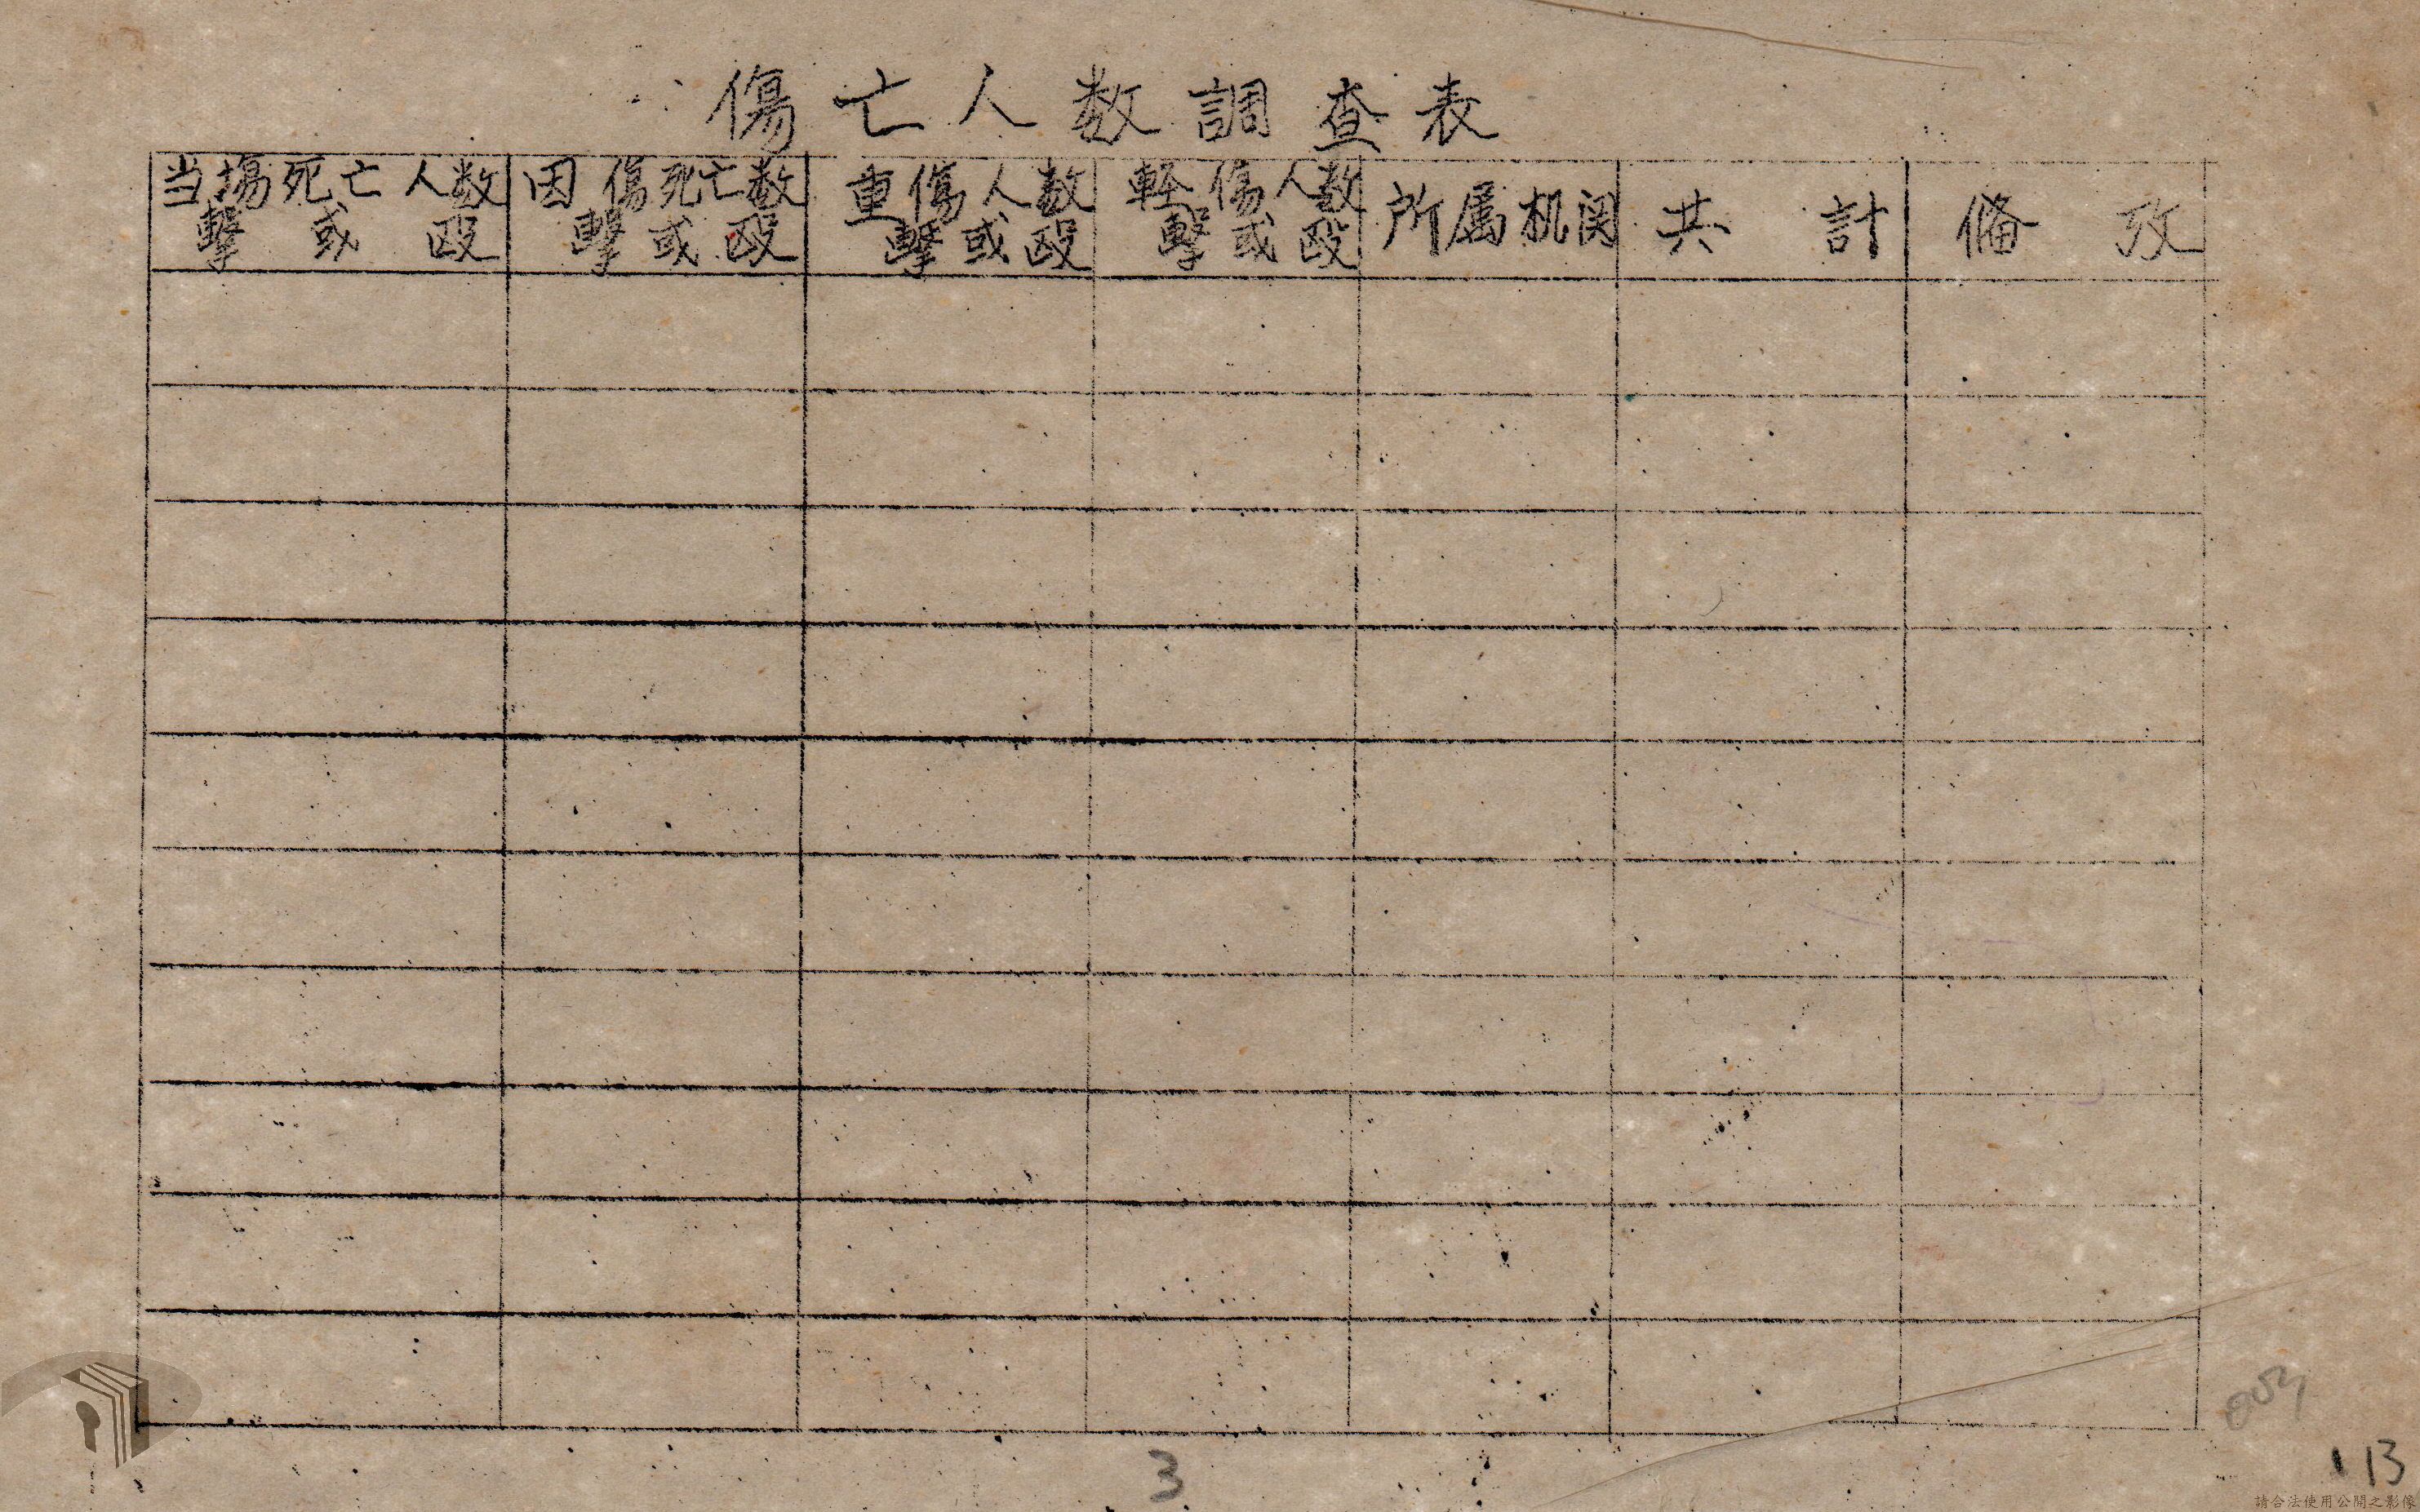 傷亡人数調查表
当場死亡人数
擊或毆
因傷死亡数
擊或毆
重傷人数
擊或毆
軽傷人数
擊或毆
所属机関
共計
備攷
3
113
請合法使用公開之影像